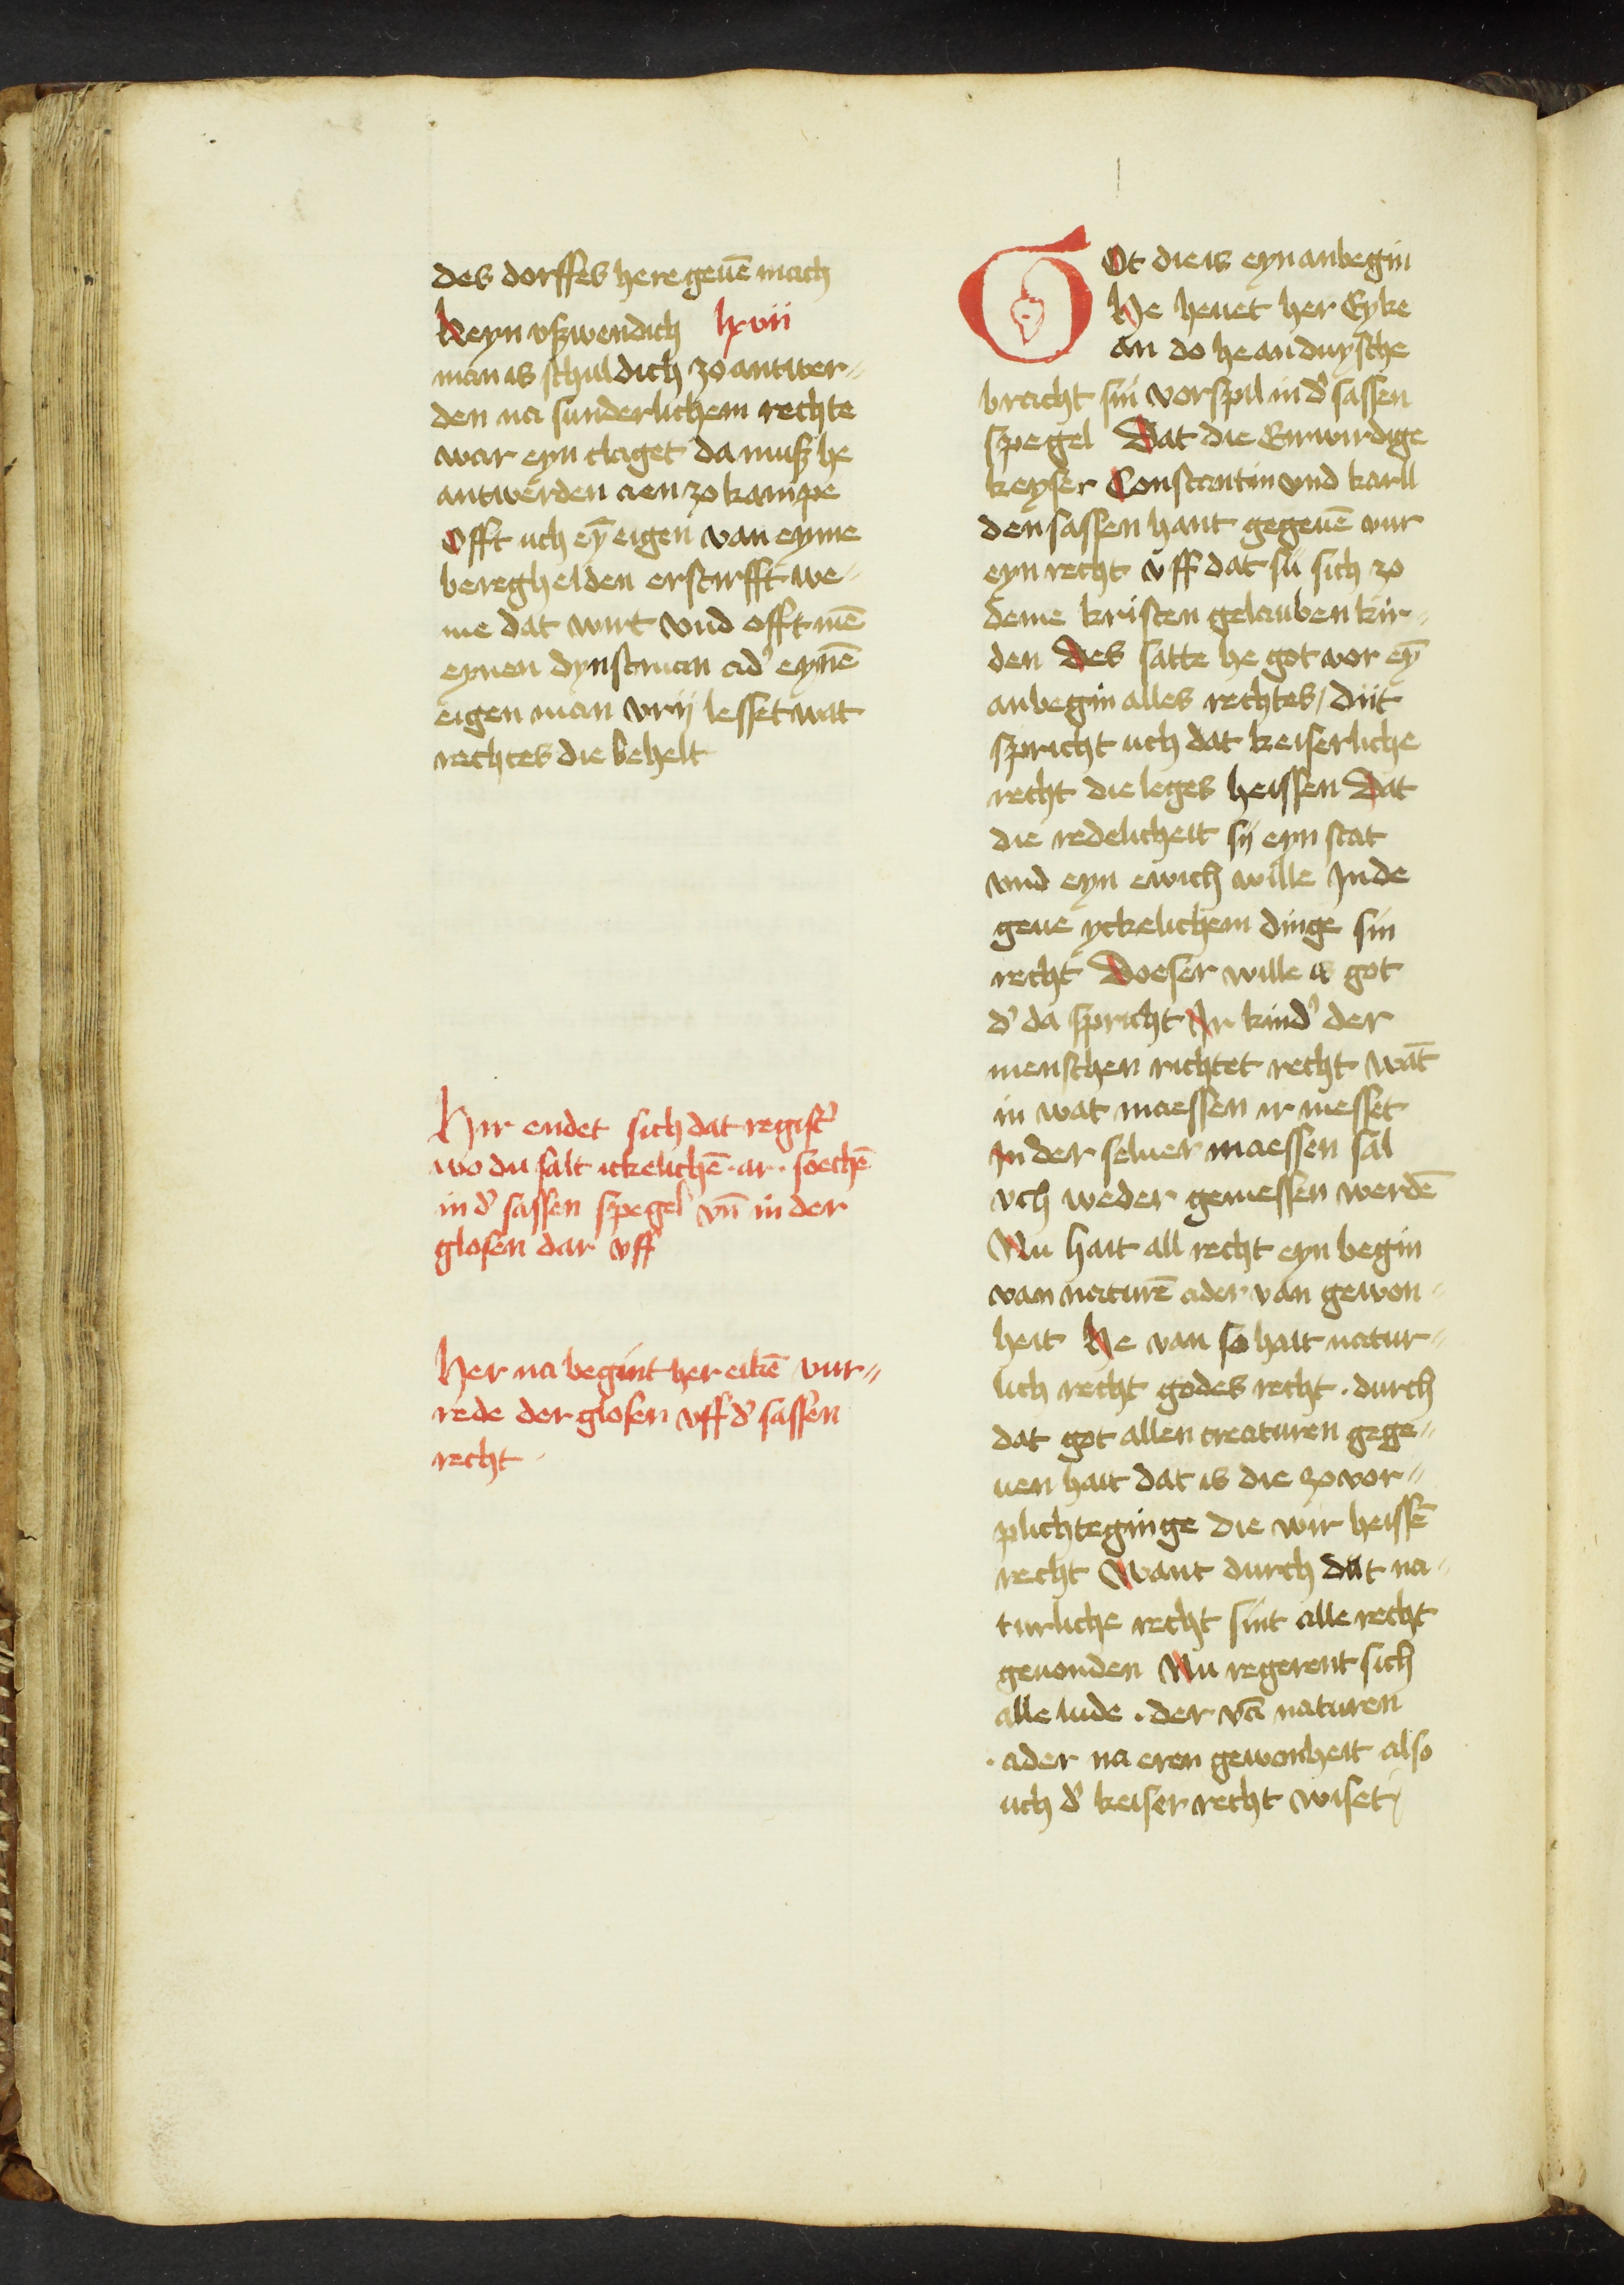 des dorffes here geuē mach
Keyn vßwendich lxvii
man is schuldich zo antwer-
den na sunderlichem rechte
war eyn claget da muß he
antwerden aen zo kampe
Offt uch eȳ eigen van eyme
bereghelden erstirfft we-
me dat wirt vnd offt mē
eynen dynstman ad' eynē
eigen man vrij lesset wat
rechtes die behelt
Hir endet sich dat regist'
wo du salt ickelichē .ar. soechē
in d' sassen spegel vn̄ in der
glosen dar vff
Her na begint her eikē vur-
rede der glosen vff d' sassen
recht
GOt die is eyn anbegin
He heuet her Eyke
an do he an duysche
bracht sin vorspil in d' sassen
spegel Dat die Eirwirdige
keyser Constantin vnd karll
den sassen hant gegeuē vur
eyn recht vff dat sii sich zo
deme kristen gelauben kir-
den Des satte he got vor eȳ
anbegin alles rechtes / diit
spricht uch dat keiserliche
recht die leges heissen Dat
die redelicheit sij eyn stat
vnd eyn ewich wille Inde
geue yckelichem dinge sin
recht Doeser wille is got
d' da spricht Ir kind' der
menschen richtet recht wāt
in wat maessen ir messet
In der seluer maessen sal
vch weder gemessen werdē
Nu hait all recht eyn begin
van naturē ader van gewon-
heit He van so hait natur-
lich recht godes recht . durch
dat got allen creaturen gege-
uen hait dat is die zo vor-
plichteginge die wir heissē
recht Want durch dat na-
turliche recht sint alle recht
geuonden Nu regerent sich
alle lude . der vā naturen
. ader na eren gewonheit also
uch d' keiser recht wiset /